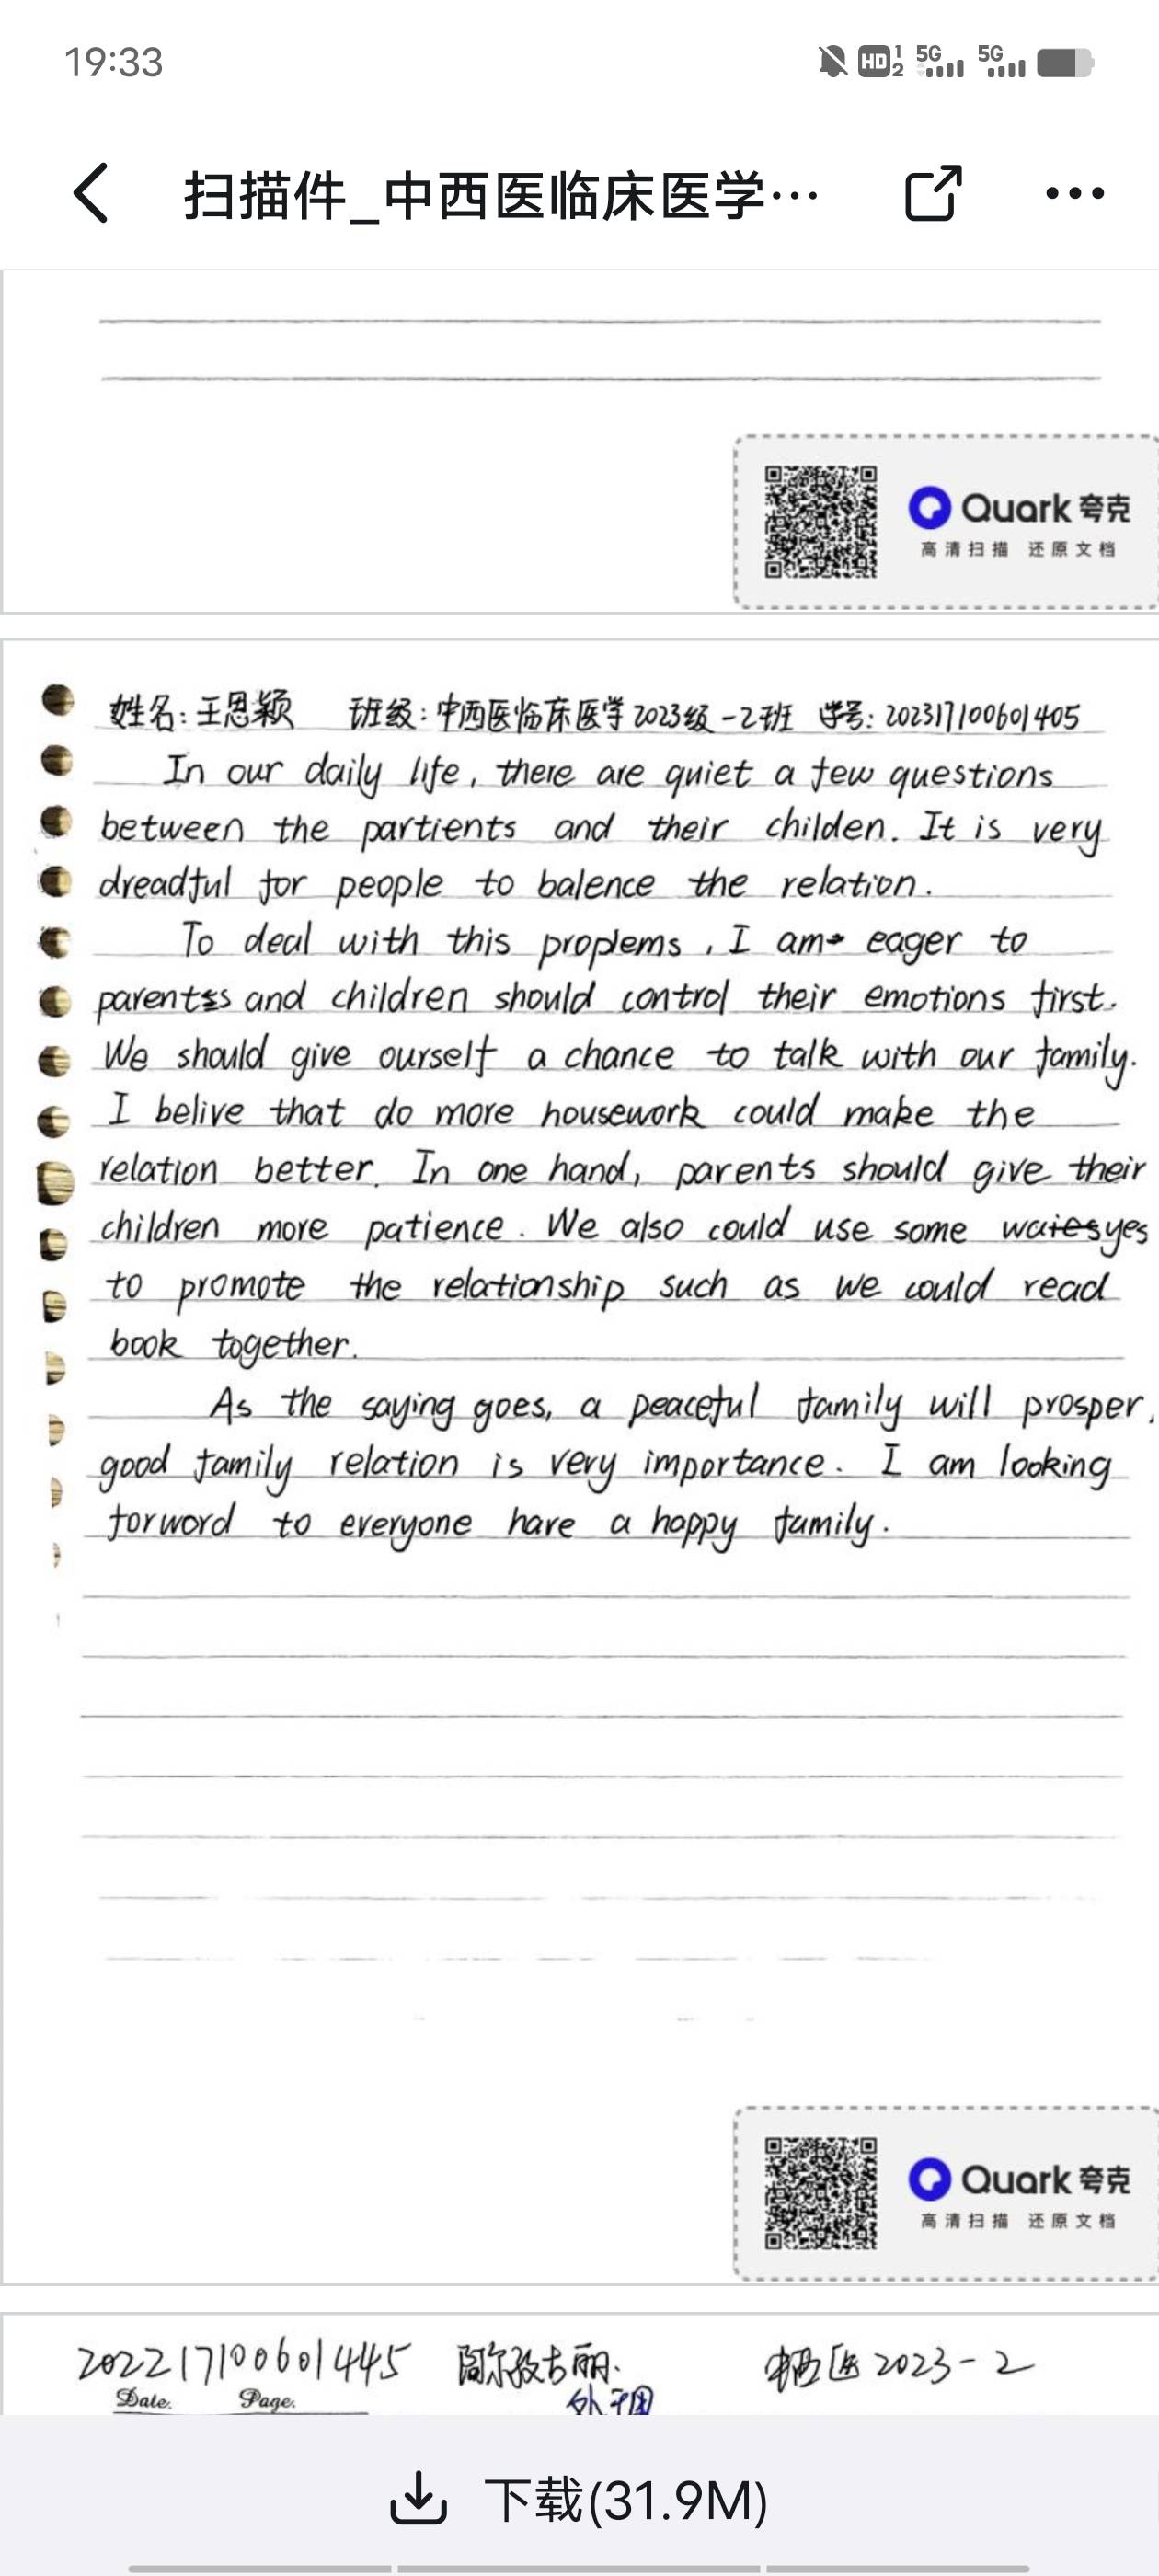 19:33
HD 1 2 5G 5G
扫描件_中西医临床医学…
Quark 夸克
高清扫描 还原文档
姓名: 王恩颖 班级: 中西医临床医学2023级-2班 学号: 202317100601405
In our daily life, there are quiet a few questions
between the partients and their childen. It is very
dreadful for people to balence the relation.
To deal with this proplems, I am eager to
parents and children should control their emotions first.
We should give ourself a chance to talk with our family.
I belive that do more housework could make the
relation better. In one hand, parents should give their
children more patience. We also could use some waiesyes
to promote the relationship such as we could read
book together.
As the saying goes, a peaceful family will prosper,
good family relation is very importance. I am looking
forword to everyone have a happy family.
Quark 夸克
高清扫描 还原文档
202217100601445 阿尔孜古丽. 中西医2023-2
Date. Page.
下载(31.9M)